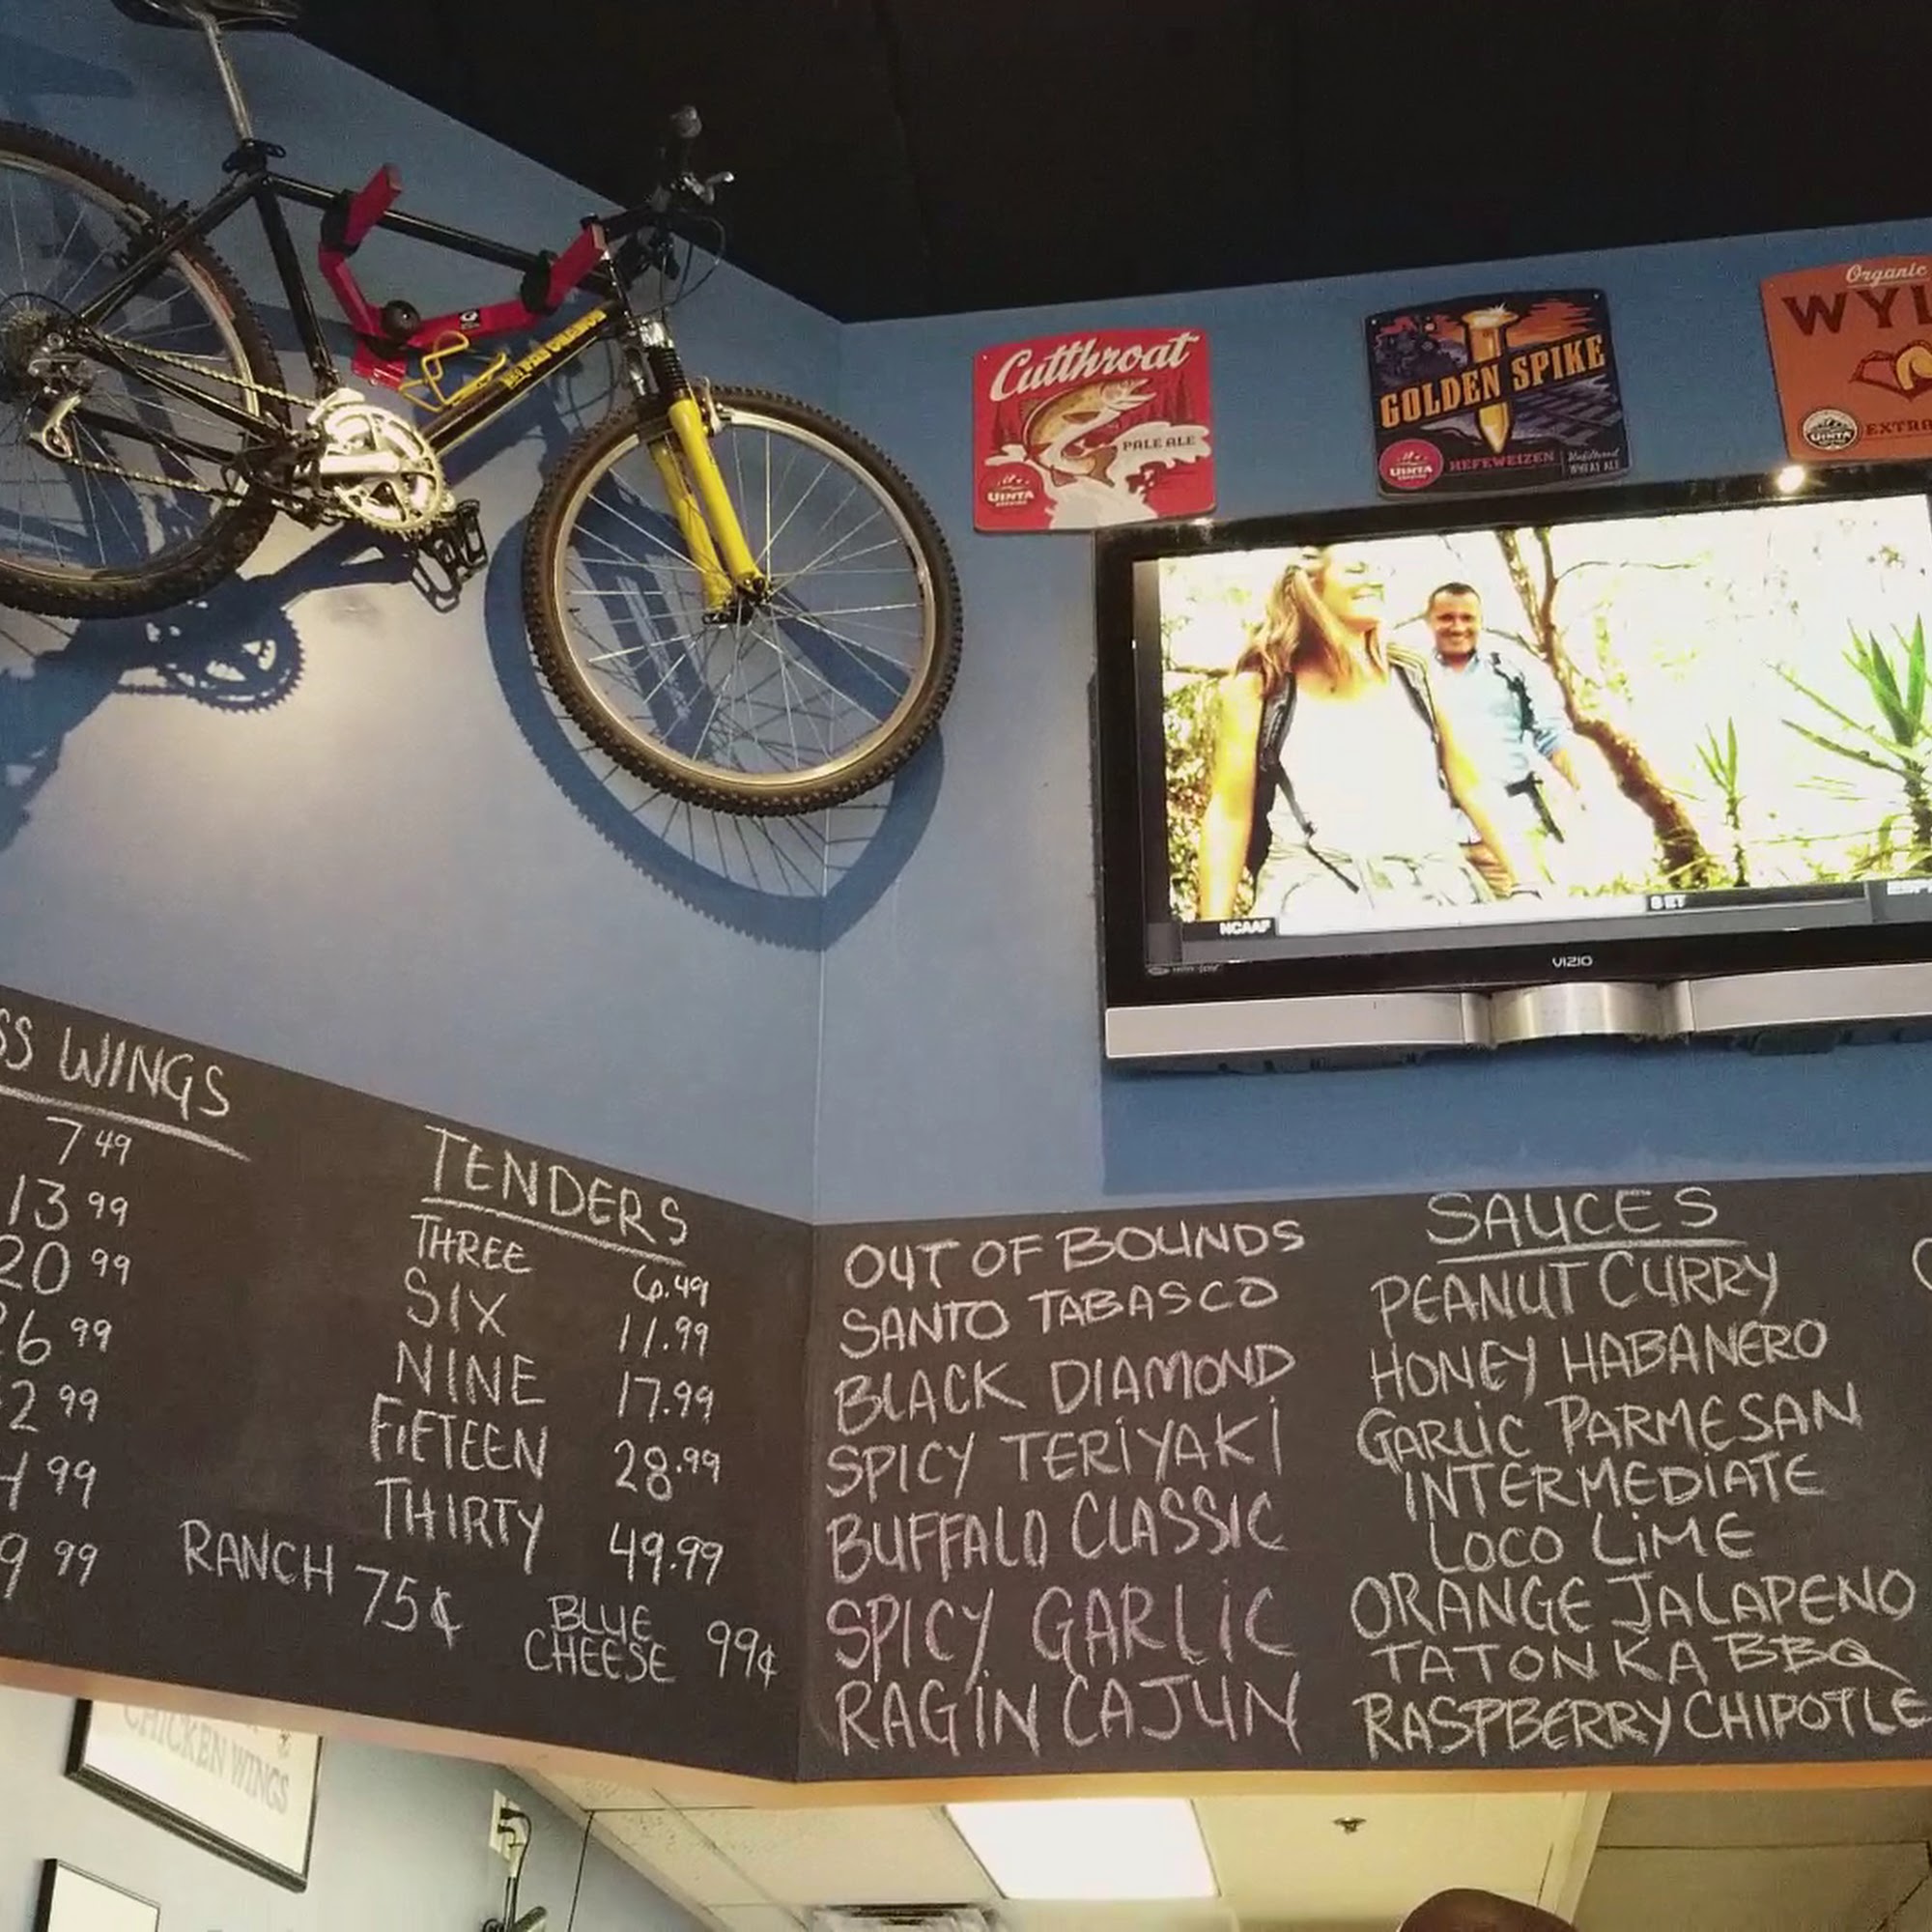 Cutthroat
PALE ALE
UINTA
GOLDEN SPIKE
UINTA
HEFEWEIZEN
Unfiltered
WHEAT ALE
Organic
WY
UINTA
EXTRA
NCAAF
8 ET
VIZIO
SS WINGS
7 49
13 99
20 99
6 99
2 99
4 99
9 99
TENDERS
THREE 6.49
SIX 11.99
NINE 17.99
FiFTEEN 28.99
THIRTY 49.99
RANCH 75¢
BLUE
CHEESE 99¢
OUT OF BOUNDS
SANTO TABASCO
BLACK DIAMOND
SPICY TERiYAKi
BUFFALO CLASSIC
SPICY GARLiC
RAGiN CAJUN
SAUCES
PEANUT CURRY
HONEY HABANERO
GARLiC PARMESAN
iNTERMEDiATE
LOCO LiME
ORANGE JALAPENO
TATONKA BBQ
RASPBERRY CHIPOTLE
CHICKEN WINGS